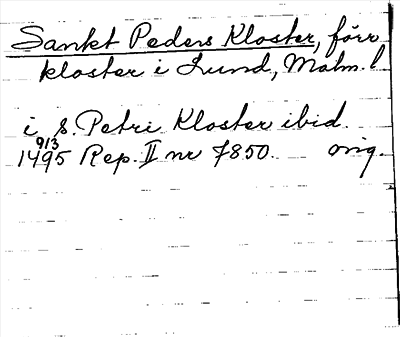 Sankt Peders Kloster, förr
kloster i Lund, Malm. l
i S. Petri Kloster ibid.
9/3
1495 Rep. II nr 7850. orig.